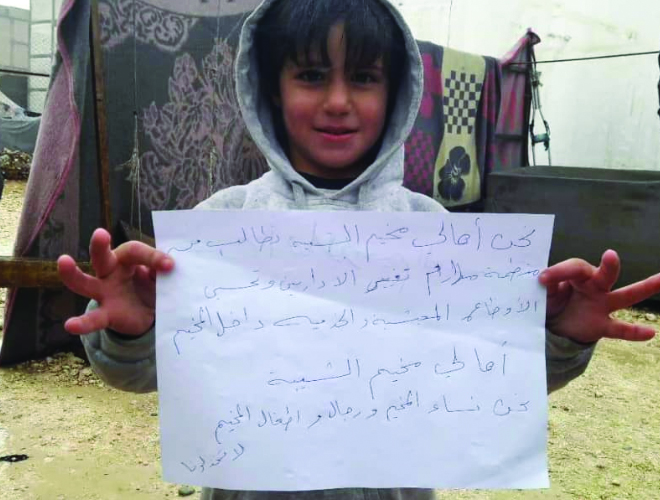 نحن أهالي مخيم الشبيبة نطالب من
منظمة تغيير الاداريين وتحسين
الأوضاع المعيشية والخدمية داخل المخيم
أهالي مخيم الشبيبة
نحن نساء المخيم ورجال و اطفال المخيم